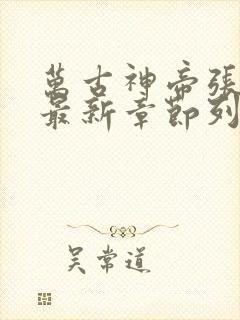 萬古神帝張
最新章節列
吴常道